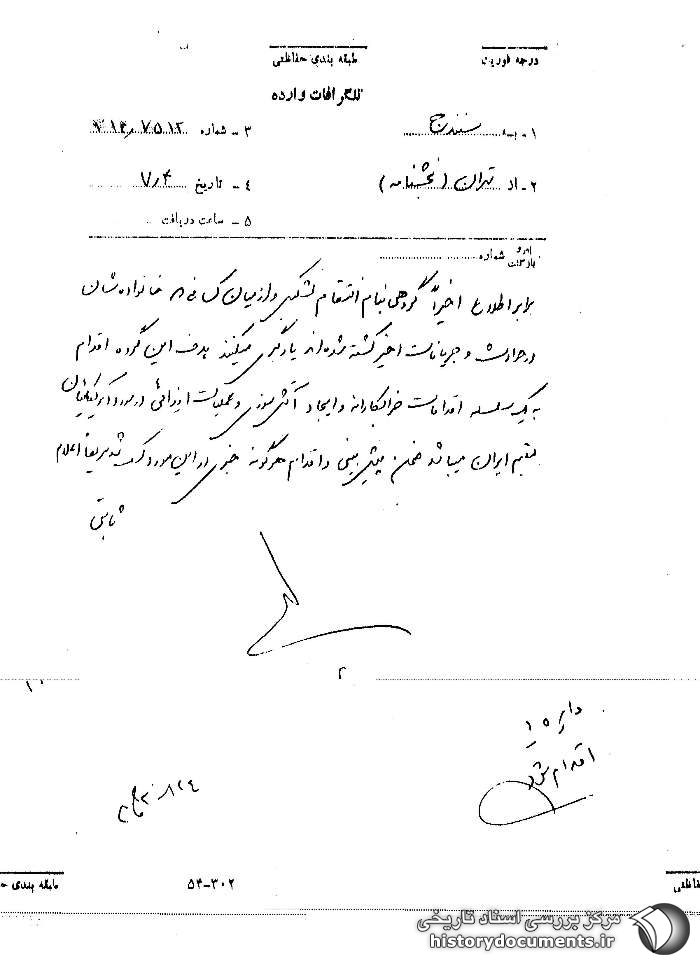 درجه فوریت
طبقه بندی حفاظتی
تلگرافات وارده
۱ - به سنندج
۳ - شماره ۷۵۱۲
۲ - از تهران (بخشنامه)
۴ - تاریخ ۷٫۴
۵ - ساعت دریافت
شماره
برابر اطلاع اخیراً گروهی بنام انتقام تشکیل و از میان کسانی که خانواده شان
در حوادث و جریانات اخیر کشته شده اند یارگیری میکنند هدف این گروه اقدام
به یک سلسله اقدامات خرابکارانه و ایجاد آتش سوزی و عملیات ایذائی در مورد آمریکائیان
مقیم ایران میباشد ضمن پیش بینی و اقدام هرگونه خبری در این مورد کسب شد سریعاً اعلام
ثابتی
۲
۱۰
اقدام شود
طبقه بندی
۵۴-۳۰۲
مرکز بررسی اسناد تاریخی
historydocuments.ir